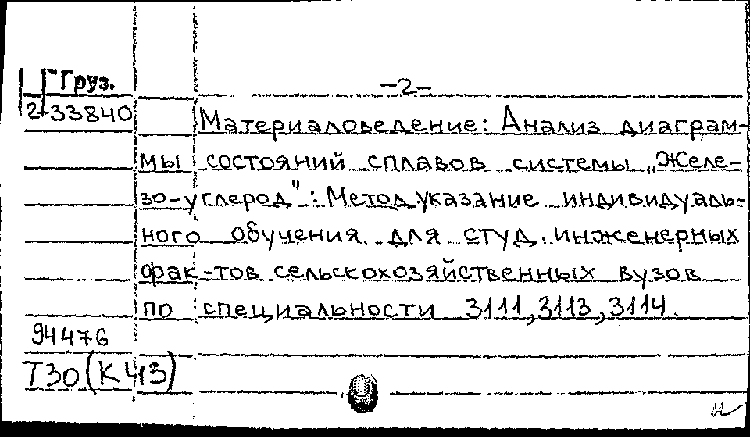 Груз.
-2-
2-33840
Материаловедение: Анализ диаграм-
мы состояний сплавов системы „Желе-
зо-углерод": Метод указание индивидуаль-
ного обучения для студ. инженерных
фак-тов сельскохозяйственных вузов
по специальности 3111, 3113, 3114.
94476
Т30(К43)